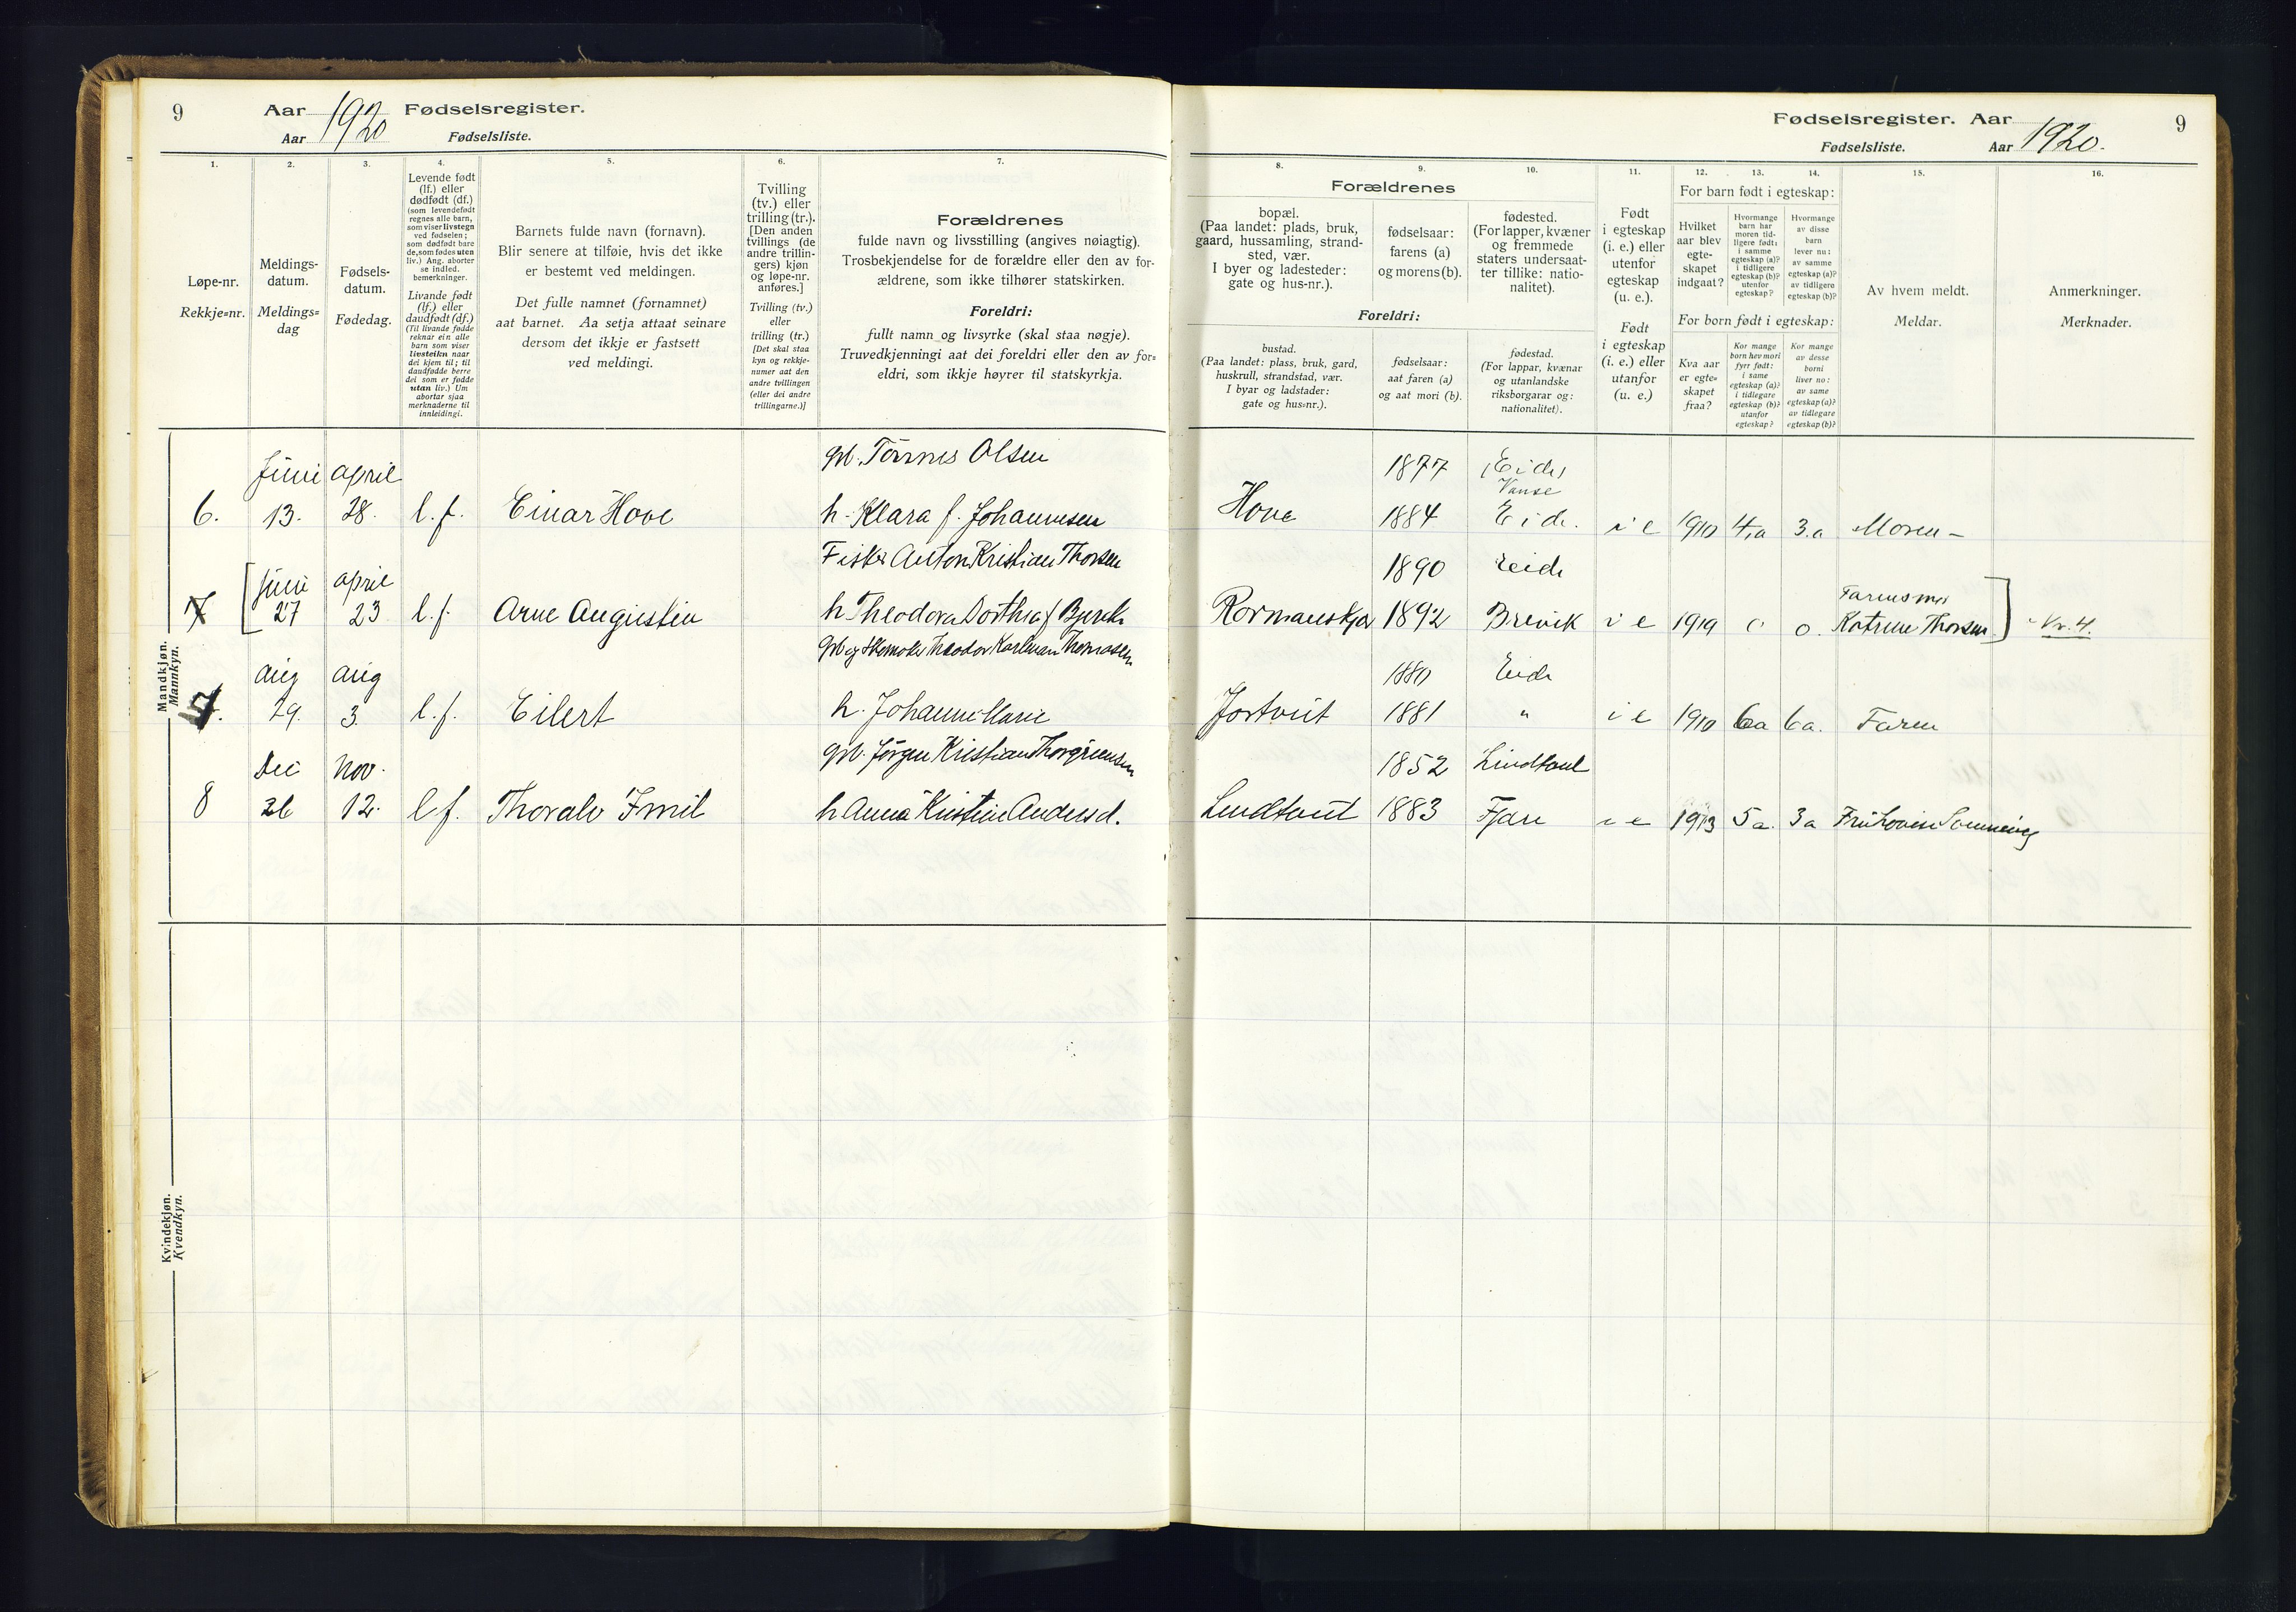 9
Aar 1920 Fødselsregister.
Aar Fødselsliste.
1.
Løpe-nr.
Rekkje=nr.
2.
Meldings-
datum.
Meldings=
dag
3.
Fødsels-
datum.
Fødedag.
4.
Levende født
(lf.) eller
dødfødt (df.)
(som levendefødt
regnes alle barn,
som viser livstegn
ved fødselen;
som dødfødt bare
de, som fødes uten
liv.) Ang. aborter
se indled.
bemerkninger.
Livande født
(lf.) eller
daudfødt (df.)
(Til livande fødde
reknar ein alle
barn som viser
livsteikn naar
dei kjem til; til
daudfødde berre
dei som er fødde
utan liv.) Um
abortar sjaa
merknaderne til
innleidingi.
5.
Barnets fulde navn (fornavn).
Blir senere at tilføie, hvis det ikke
er bestemt ved meldingen.
Det fulle namnet (fornamnet)
aat barnet. Aa setja attaat seinare
dersom det ikkje er fastsett
ved meldingi.
6.
Tvilling
(tv.) eller
trilling (tr.).
[Den anden
tvillings (de
andre trillin-
gers) kjøn
og løpe-nr.
anføres.]
Tvilling (tv.)
eller
trilling (tr.)
[Det skal staa
kyn og rekkje-
numer aat den
andre tvillingen
(eller dei andre
trillingarne.)]
7.
Forældrenes
fulde navn og livsstilling (angives nøiagtig).
Trosbekjendelse for de forældre eller den av for-
ældrene, som ikke tilhører statskirken.
Foreldri:
fullt namn og livsyrke (skal staa nøgje).
Truvedkjenningi aat dei foreldri eller den av for=
eldri, som ikkje høyrer til statskyrkja.
Fødselsregister. Aar 1920.
Fødselsliste. Aar
9
8.
Forældrenes
bopæl.
(Paa landet: plads, bruk,
gaard, hussamling, strand-
sted, vær.
I byer og ladesteder:
gate og hus-nr.).
Foreldri:
bustad.
(Paa landet: plass, bruk, gard,
huskrull, strandstad, vær.
I byar og ladstader:
gate og hus=nr.).
9.
fødselsaar:
farens (a)
og morens (b).
fødselsaar:
aat faren (a)
og aat mori (b).
10.
fødested.
(For lapper, kvæner
og fremmede
staters undersaat-
ter tillike: natio-
nalitet).
fødestad.
(For lappar, kvænar
og utanlandske
riksborgarar og:
nationalitet).
11.
Født
i egteskap
(i. e.) eller
utenfor
egteskap
(u. e.).
Født
i egteskap
(i. e.) eller
utanfor
(u. e.)
12. 13. 14.
For barn født i egteskap:
Hvilket
aar blev
egte-
skapet
indgaat?
Hvormange
barn har
moren tid-
ligere født:
i samme
egteskap (a)?
i tidligere
egteskap (b)?
utenfor
egteskap?
Hvormange
av disse
barn
lever nu:
av samme
egteskap (a)?
av tidligere
egteskap (b)?
For born født i egteskap:
Kva aar
er egte=
skapet
fraa?
Kor mange
born hev mori
fyrr født:
i same
egteskap (a)?
i tidlegare
egteskap (b)?
utanfor
egteskap?
Kor mange
av desse
borni
liver no:
av same
egteskap (a)?
av tidlegare
egteskap (b)?
15.
Av hvem meldt.
Meldar.
16.
Anmerkninger.
Merknader.
Mandkjøn.
Mannkyn.
Juni april gbr. Tørnes Olsen 1877 Eide
Vanse
6. 13. 28. l.f. Einar Hove h. Klara f. Johannesen Hove 1884 Eide. i e 1910 4.a 3.a Moren
Fisker Anton Kristian Thorsen 1890 Eide
Juni april Farens mor
7 27 23 l.f. Arne Augustin h Theodora Dorthea f Bjerck 1892 Brevik i e 1919 0 0. Katrine Thorsen Nr. 4.
gbr og Skomaker Theodor Karlman Thomassen
aug aug 1880 Eide
7. 29. 3. l.f. Eilert h. Johanne Marie Jortveit 1881 " i e 1910 6a 6a. Faren
gbr. Jørgen Kristian Thorgrimsen
Dec nov. 1852 Lindtveit
8 26 12. l f. Thoralv Emil h Anna Kristine Andersd. Lindtveit 1883 Fjære i e 1913 5 a. 3a Fru Lovise
Kvindekjøn.
Kvendkyn.